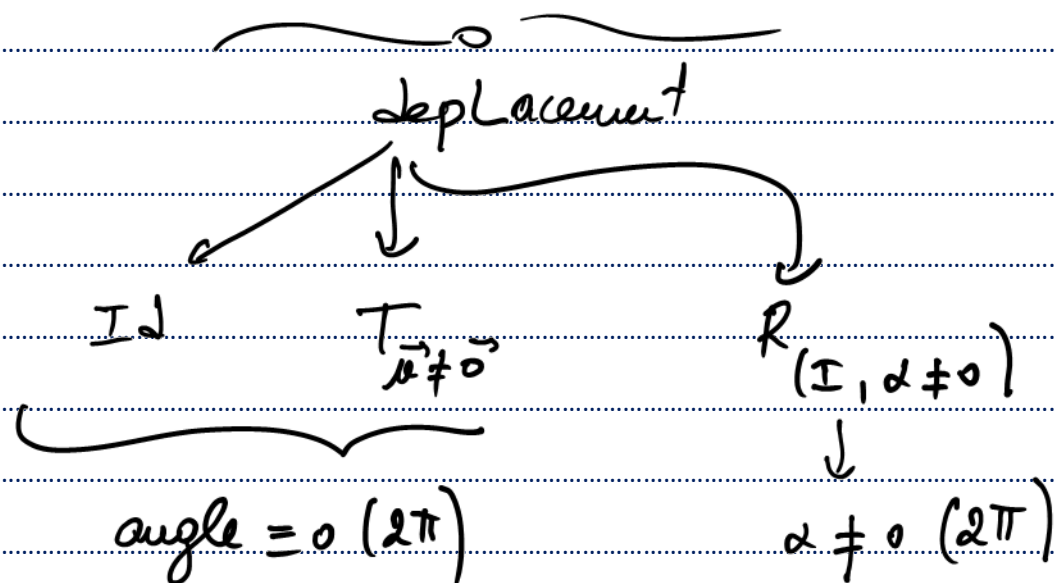 deplacement
Id T_{\vec{u} ≠ \vec{0}} R_{(I, α ≠ 0)}
angle ≡ 0 (2π) α ≢ 0 (2π)